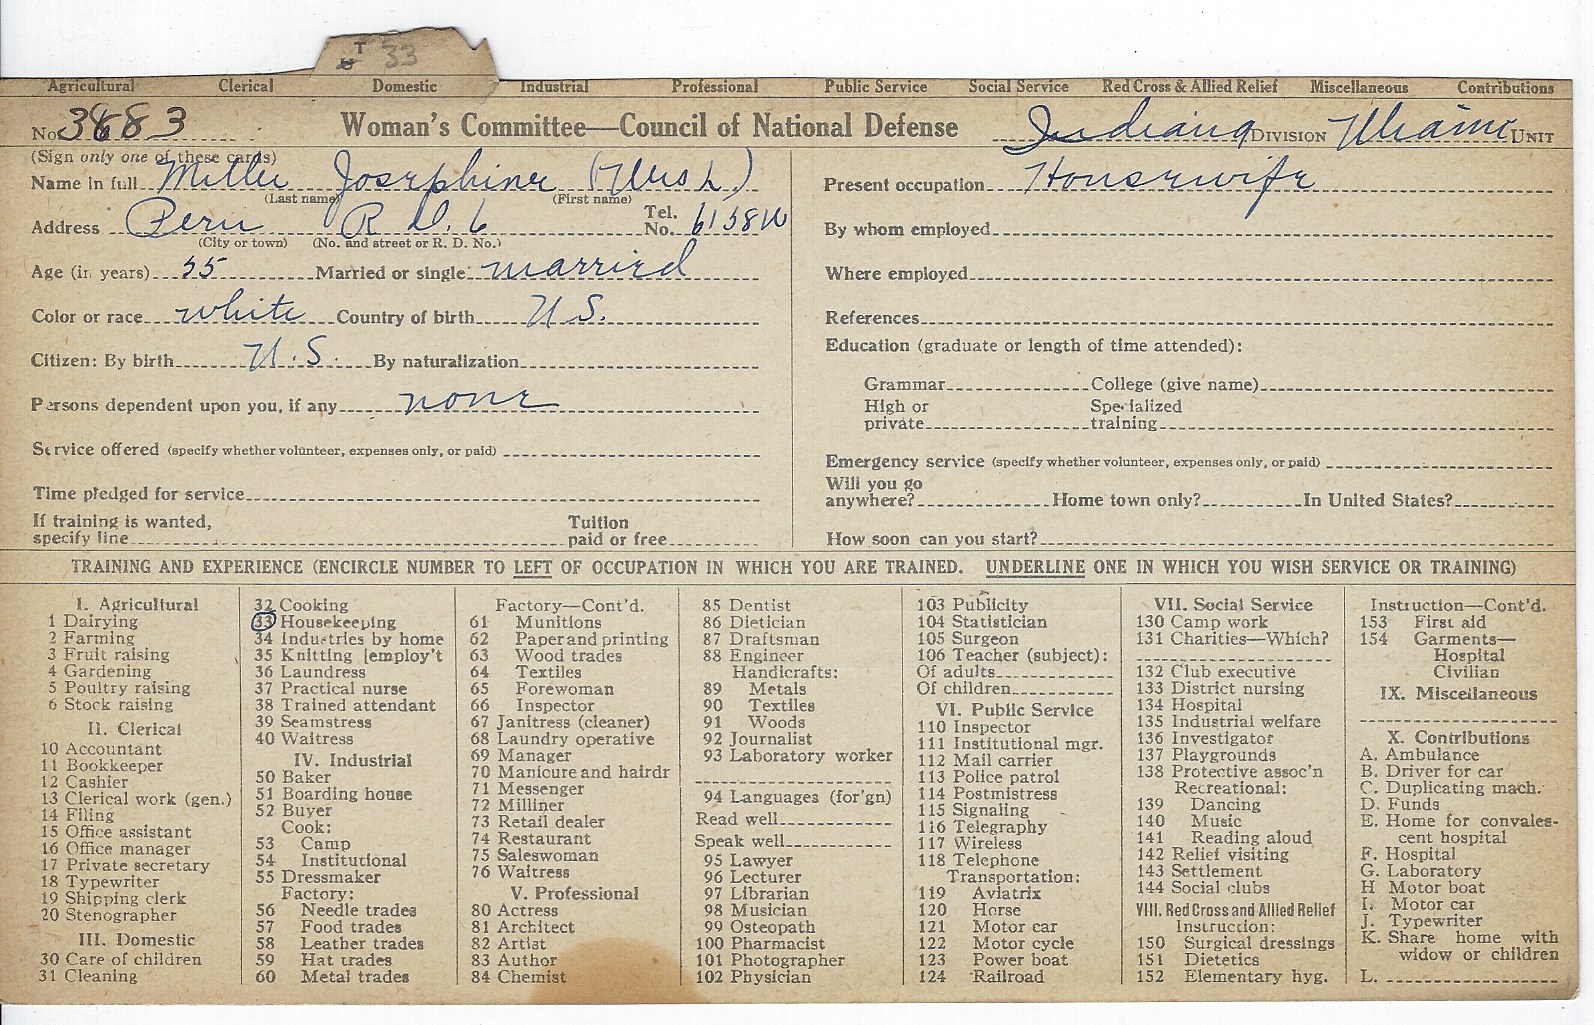 T 33
Agricultural Clerical Domestic Industrial Professional Public Service Social Service Red Cross & Allied Relief Miscellaneous Contributions
No. 3883 Woman's Committee—Council of National Defense Indiana DIVISION Miami UNIT
(Sign only one of these cards)
Name in full Miller Josephine (Mrs L)
(Last name) (First name)
Address Peru R D. 6 Tel. No. 6158W
(City or town) (No. and street or R. D. No.)
Age (in years) 55 Married or single: married
Color or race white Country of birth U.S.
Citizen: By birth U.S. By naturalization
Persons dependent upon you, if any none
Service offered (specify whether volunteer, expenses only, or paid)
Time pledged for service
If training is wanted,
specify line Tuition paid or free
Present occupation Housewife
By whom employed
Where employed
References
Education (graduate or length of time attended):
Grammar College (give name)
High or private Specialized training
Emergency service (specify whether volunteer, expenses only, or paid)
Will you go
anywhere? Home town only? In United States?
How soon can you start?
TRAINING AND EXPERIENCE (ENCIRCLE NUMBER TO LEFT OF OCCUPATION IN WHICH YOU ARE TRAINED. UNDERLINE ONE IN WHICH YOU WISH SERVICE OR TRAINING)
I. Agricultural
1 Dairying
2 Farming
3 Fruit raising
4 Gardening
5 Poultry raising
6 Stock raising
II. Clerical
10 Accountant
11 Bookkeeper
12 Cashier
13 Clerical work (gen.)
14 Filing
15 Office assistant
16 Office manager
17 Private secretary
18 Typewriter
19 Shipping clerk
20 Stenographer
III. Domestic
30 Care of children
31 Cleaning
32 Cooking
33 Housekeeping
34 Industries by home
35 Knitting [employ't
36 Laundress
37 Practical nurse
38 Trained attendant
39 Seamstress
40 Waitress
IV. Industrial
50 Baker
51 Boarding house
52 Buyer
Cook:
53 Camp
54 Institutional
55 Dressmaker
Factory:
56 Needle trades
57 Food trades
58 Leather trades
59 Hat trades
60 Metal trades
Factory—Cont'd.
61 Munitions
62 Paper and printing
63 Wood trades
64 Textiles
65 Forewoman
66 Inspector
67 Janitress (cleaner)
68 Laundry operative
69 Manager
70 Manicure and hairdr
71 Messenger
72 Milliner
73 Retail dealer
74 Restaurant
75 Saleswoman
76 Waitress
V. Professional
80 Actress
81 Architect
82 Artist
83 Author
84 Chemist
85 Dentist
86 Dietician
87 Draftsman
88 Engineer
Handicrafts:
89 Metals
90 Textiles
91 Woods
92 Journalist
93 Laboratory worker
94 Languages (for'gn)
Read well
Speak well
95 Lawyer
96 Lecturer
97 Librarian
98 Musician
99 Osteopath
100 Pharmacist
101 Photographer
102 Physician
103 Publicity
104 Statistician
105 Surgeon
106 Teacher (subject):
Of adults
Of children
VI. Public Service
110 Inspector
111 Institutional mgr.
112 Mail carrier
113 Police patrol
114 Postmistress
115 Signaling
116 Telegraphy
117 Wireless
118 Telephone
Transportation:
119 Aviatrix
120 Horse
121 Motor car
122 Motor cycle
123 Power boat
124 Railroad
VII. Social Service
130 Camp work
131 Charities—Which?
132 Club executive
133 District nursing
134 Hospital
135 Industrial welfare
136 Investigator
137 Playgrounds
138 Protective assoc'n
Recreational:
139 Dancing
140 Music
141 Reading aloud
142 Relief visiting
143 Settlement
144 Social clubs
VIII. Red Cross and Allied Relief
Instruction:
150 Surgical dressings
151 Dietetics
152 Elementary hyg.
Instruction—Cont'd.
153 First aid
154 Garments—
Hospital
Civilian
IX. Miscellaneous
X. Contributions
A. Ambulance
B. Driver for car
C. Duplicating mach.
D. Funds
E. Home for convales-
cent hospital
F. Hospital
G. Laboratory
H Motor boat
I. Motor car
J. Typewriter
K. Share home with
widow or children
L.